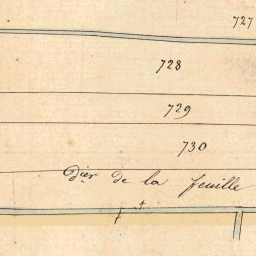 727
728
729
730
Dier de la feuille